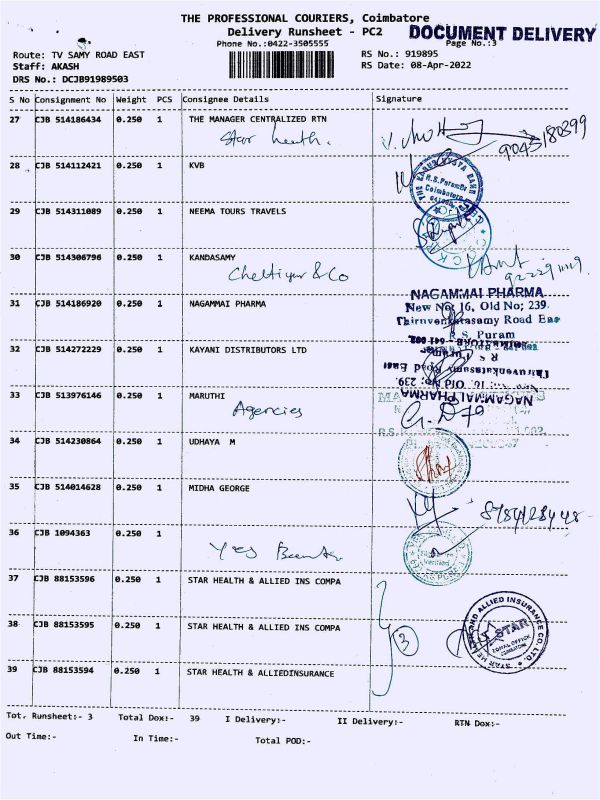 THE PROFESSIONAL COURIERS, Coimbatore
Delivery Runsheet - PC2
DOCUMENT DELIVERY
Phone No.:0422-3505555
Page No.:3
Route: TV SAMY ROAD EAST
RS No.: 919895
Staff: AKASH
RS Date: 08-Apr-2022
DRS No.: DCJB91989503
S No Consignment No Weight PCS Consignee Details Signature
27 CJB 514186434 0.250 1 THE MANAGER CENTRALIZED RTN
Star health.
9043180399
28 CJB 514112421 0.250 1 KVB
R.S.Puram Br
Coimbatore
29 CJB 514311089 0.250 1 NEEMA TOURS TRAVELS
30 CJB 514306796 0.250 1 KANDASAMY
Chettiyar & Co
31 CJB 514186920 0.250 1 NAGAMMAI PHARMA
NAGAMMAI PHARMA
New No; 16, Old No; 239.
Thiruvenkatasamy Road East
R.S. Puram
32 CJB 514272229 0.250 1 KAYANI DISTRIBUTORS LTD
33 CJB 513976146 0.250 1 MARUTHI
Agencies
34 CJB 514230864 0.250 1 UDHAYA M
35 CJB 514014628 0.250 1 MIDHA GEORGE
36 CJB 1094363 0.250 1
Yes Bank
37 CJB 88153596 0.250 1 STAR HEALTH & ALLIED INS COMPA
38 CJB 88153595 0.250 1 STAR HEALTH & ALLIED INS COMPA
3
STAR HEALTH AND ALLIED INSURANCE CO. LTD.
STAR
ZONAL OFFICE
COIMBATORE
39 CJB 88153594 0.250 1 STAR HEALTH & ALLIEDINSURANCE
Tot. Runsheet:- 3 Total Dox:- 39 I Delivery:- II Delivery:- RTN Dox:-
Out Time:- In Time:- Total POD:-